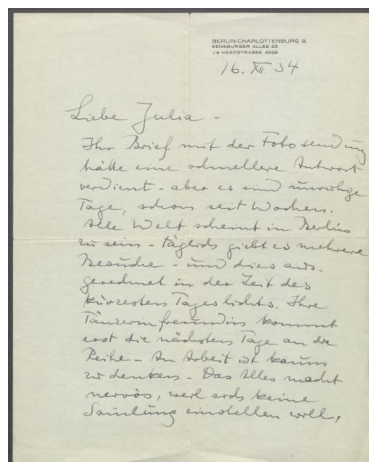 BERLIN-CHARLOTTENBURG 9
SENSBURGER ALLEE 25
J 9 HEERSTRASSE
16. XII 34
Liebe Julia -
Ihr Brief mit der Fotosendung
hätte eine schnellere Antwort
verdient - aber es sind unruhige
Tage, schon seit Wochen.
Alle Welt scheint in Berlin
zu sein - täglich giebt es mehrere
Besuche - und dies aus-
gerechnet in der Zeit des
kürzesten Tageslichts. Ihre
Tänzerinfreundin kommt
erst die nächsten Tage an die
Reihe - An Arbeit ist kaum
zu denken - Das Alles macht
nervös, weil sich keine
Samlung einstellen will,